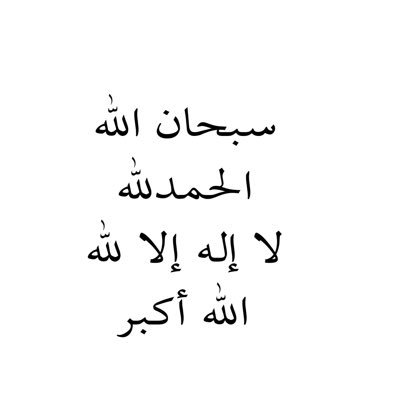 سبحان الله
الحمدلله
لا إله إلا لله
الله أكبر